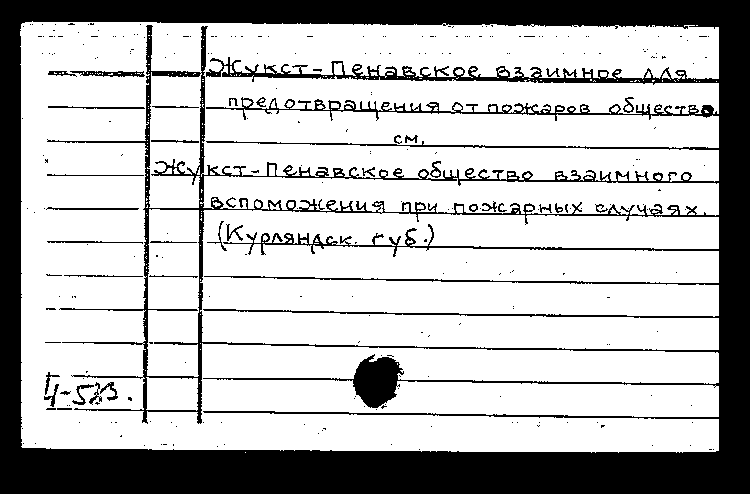 Жукст-Пенавское взаимное для
предотвращения от пожаров общество.
см.
Жукст-Пенавское общество взаимного
вспоможения при пожарных случаях.
(Курляндск. губ.)